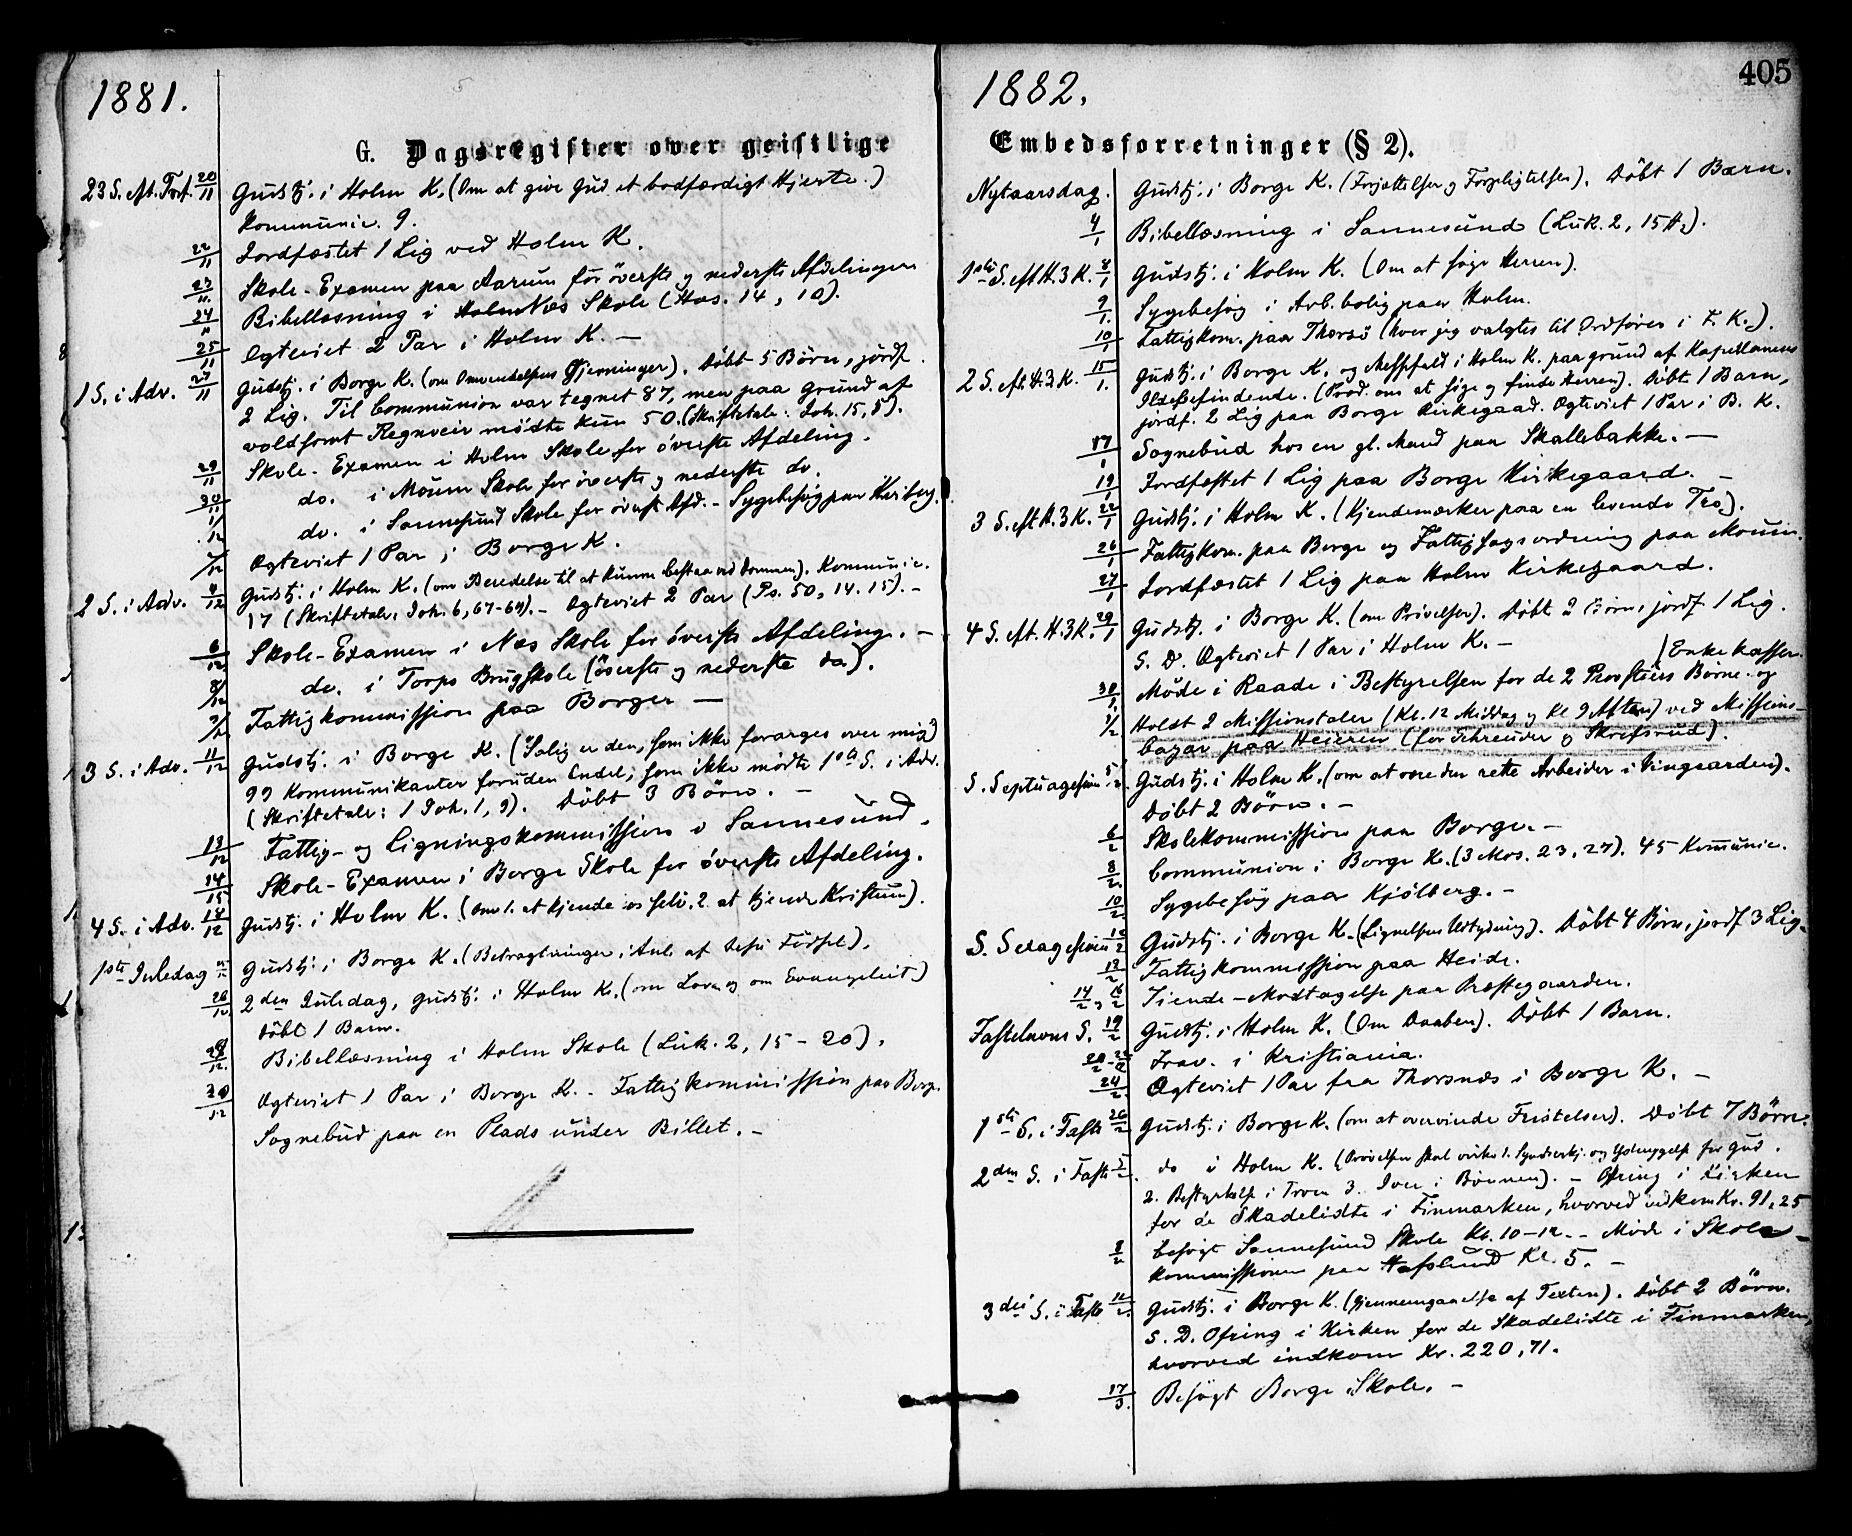 1881.
G. Dagsregister over geistlige
23 S. eft. Tref. 20/11 Gudstj. i Holm K. (Om at give Gud et bodfærdigt Hjerte.)
Kommunic. 9.
22/11 Jordfæstet 1 Lig ved Holm K.
23/11 Skole-Examen paa Aarum for øverste og nederste Afdelinger
24/11 Bibellæsning i Holm Næs Skole (Hos. 14, 10).
25/11 Ægteviet 2 Par i Holm K. —
1 S. i Adv. 27/11 Gudstj. i Borge K. (om Omvendelsens Gjerninger). Døbt 5 Børn, jordf.
2 Lig. Til Communion var tegnet 87, men paa Grund af
voldsomt Regnveir mødte kun 50. (Skriftetale: Joh. 15, 5).
29/11 Skole-Examen i Holm Skole for øverste Afdeling.
30/11 do. i Moum Skole for øverste og nederste do.
1/12 do. i Sannesund Skole for øverst Afd. - Sygebesøg paa
2/12 Ægteviet 1 Par i Borge K.
2 S. i Adv. 4/12 Gudstj. i Holm K. (om Beredelse til at kunne bestaa ved Dommen). Kommunic.
17 (Skriftetale: Joh. 6, 67-69). - Ægteviet 2 Par (Ps. 50, 14. 15). -
6/12 Skole-Examen i Næs Skole for øverste Afdeling. -
8/12 do. i Torps Brugsskole (øverste og nederste do.).
9/12 Fattigkommission paa Borger —
3 S. i Adv. 11/12 Gudstj. i Borge K. (Salig er den, som ikke forarges over mig)
99 Kommunikanter foruden Endel, som ikke mødte 1ste S. i Adv.
(Skriftetale: 1 Joh. 1, 9). Døbt 3 Børn. -
13/12 Fattig- og Ligningskommission i Sannesund.
14/12 Skole-Examen i Borge Skole for øverste Afdeling.
4 S. i Adv. 18/12 Gudstj. i Holm K. (Om 1. at kjende os selv. 2. at kjende Kristum).
1ste Juledag Gudstj. i Borge K. (Betragtninger i Anl. af Jesu Fødsel).
26/12 2den Juledag, Gudstj. i Holm K. (om Loven og om Evangeliet)
Døbt 1 Barn.
28/12. Bibellæsning i Holm Skole (Luk. 2, 15-20).
30/12 Ægteviet 1 Par i Borge K. - Fattigkommission paa Borge.
Sognebud paa en Plads under Billet. -
1882.
405
Embedsforretninger (§ 2).
Nytaarsdag. Gudstj. i Borge K. (Forjættelser og Forpligtelser). Døbt 1 Barn.
4/1 Bibellæsning i Sannesund (Luk. 2, 15 ff.).
1ste S. eft. H. 3 K. 8/1 Gudstj. i Holm K. (Om at søge Herren).
9/1. Sygebesøg i Arb.bolig paa Holm.
10/1 Fattigkom. paa Thorsø (hvor jeg valgtes til Ordfører i F. K.).
2 S. eft. H. 3 K. 15/1. Gudstj. i Borge K. og Messefald i Holm K. paa Grund af Kapellanens
Ildebefindende. (Præd. om at søge og finde Herren). Døbt 1 Barn,
jordf. 2 Lig paa Borge Kirkegaard. Ægteviet 1 Par i B. K.
17/1 Sognebud hos en gl. Mand paa Skallebakke. —
19/1 Jordfæstet 1 Lig paa Borge Kirkegaard. -
3 S. eft. H. 3 K. 22/1 Gudstj. i Holm K. (Kjendemærker paa en levende Tro).
26/1 Fattigkom. paa Borge og Fattiglægsordning paa Moum.
27/1 Jordfæstet 1 Lig paa Holm Kirkegaard.
4 S. eft. H. 3 K. 29/1 Gudstj. i Borge K. (om Prøvelser). Døbt 2 Børn, jordf. 1 Lig.
S. D. Ægteviet 1 Par i Holm K. —
30/1. Møde i Raade i Bestyrelsen for de 2 Provstiers Børne- og
Enkekasser.
1/2 Holdt 2 Missionstaler (Kl. 12 Middag og Kl. 9 Aften) ved Missions-
bazar paa Heieren (for Schreuder og Skrefsrud).
S. Septuagesima 5/2. Gudstj. i Holm K. (om at være den rette Arbeider i Vingaarden).
Døbt 2 Børn. -
6/2 Skolekommission paa Borge. -
8/2. Communion i Borge K. (3 Mos. 23, 27). 45 Kommunic.
10/2. Sygebesøg paa Kjølberg. -
S. Sexagesima 12/2 Gudstj. i Borge K. (Lignelsens Udtydning). Døbt 4 Børn, jordf. 3 Lig.
13/2 Fattigkommission paa Heide.
14/2 og 16/2 Tiende-Modtagelse paa Præstegaarden.
Fastelavns S. 19/2 Gudstj. i Holm K. (Om Daaben). Døbt 1 Barn.
20/2 - 22/2 Frav. i Kristiania.
24/2. Ægteviet 1 Par fra Thorsnæs i Borge K. -
1ste S. i Faste 26/2 Gudstj. i Borge K. (om at overvinde Fristelser). Døbt 7 Børn.
2den S. i Faste do i Holm K. (Prøvelsen skal virke 1. Syndserkj. og Ydmygelse for Gud.
2. Bestyrkelse i Troen 3. Iver i Bønnen). - Ofring i Kirken
for de Skadelidte i Finmarken, hvorved indkom Kr. 91,25
Besøgt Sannesund Skole Kl. 10-12. - Møde i Skole-
kommissionen paa Hafslund Kl. 5. -
3die S. i Faste Gudstj. i Borge K. (Gjennemgaaelse af Texten). Døbt 2 Børn.
S. D. Ofring i Kirken for de Skadelidte i Finmarken,
hvorved indkom Kr. 220,71.
17/3. Besøgt Borge Skole. -